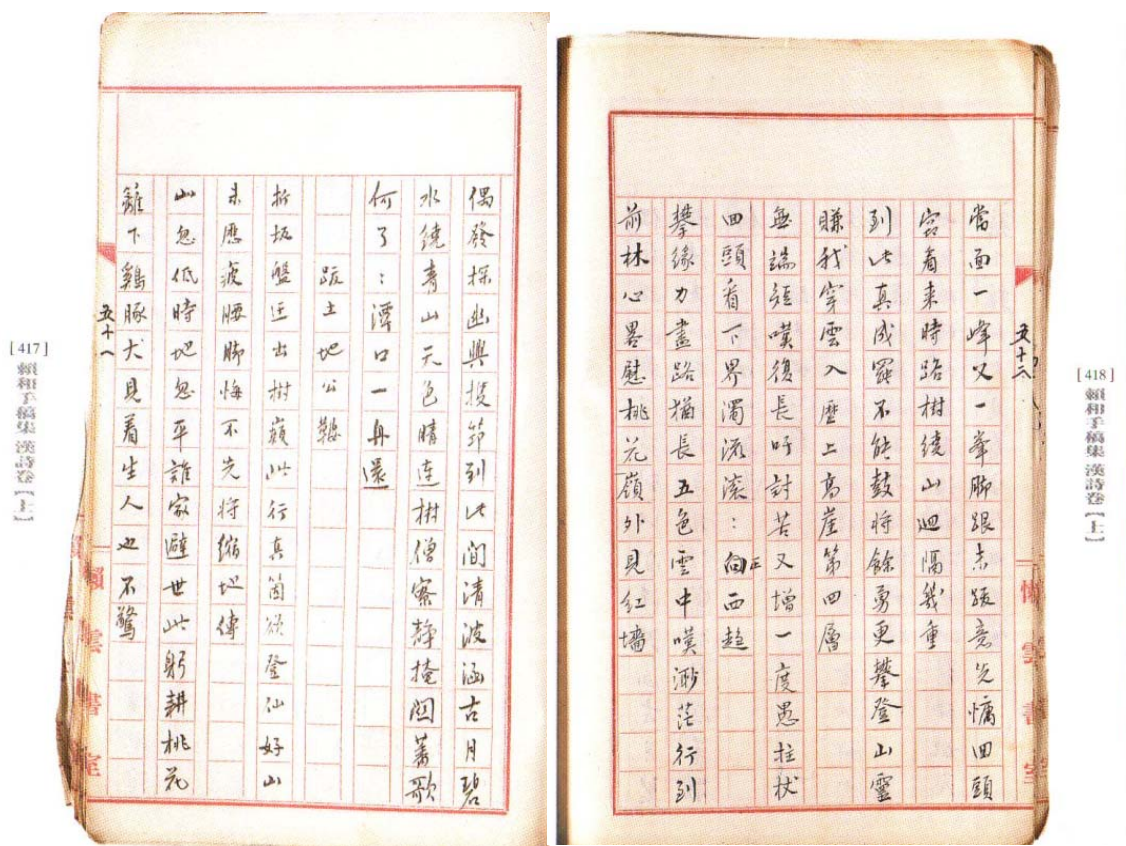 [417] 賴和手稿集 漢詩卷【上】
偶發探幽興投筇到此間清波涵古月碧
水繞青山天色晴連樹僧寮靜掩関蕃歌
何了：潭口一舟還
跋土地公鞍
折坂盤迂出樹巔此行真箇欲登仙好山
未應疲腰脚悔不先將縮地傳
山忽低時地忽平誰家避世此躬耕桃花
籬下鷄豚犬見着生人也不驚
五十八
懶雲書室
[418] 賴和手稿集 漢詩卷【上】
懶雲書室
當面一峰又一峯脚跟未跋意先慵回頭
看來時路樹繞山迴隔幾重
到此真成罷不能鼓將餘勇更攀登山靈
賺我穿雲入歷上高崖第四層
無端短嘆復長吁討苦又增一度愚拄杖
回頭看下界濁流滾：向正西趨
攀緣力盡路猶長五色雲中嘆渺茫行到
前林心畧慰桃花嶺外見紅墻